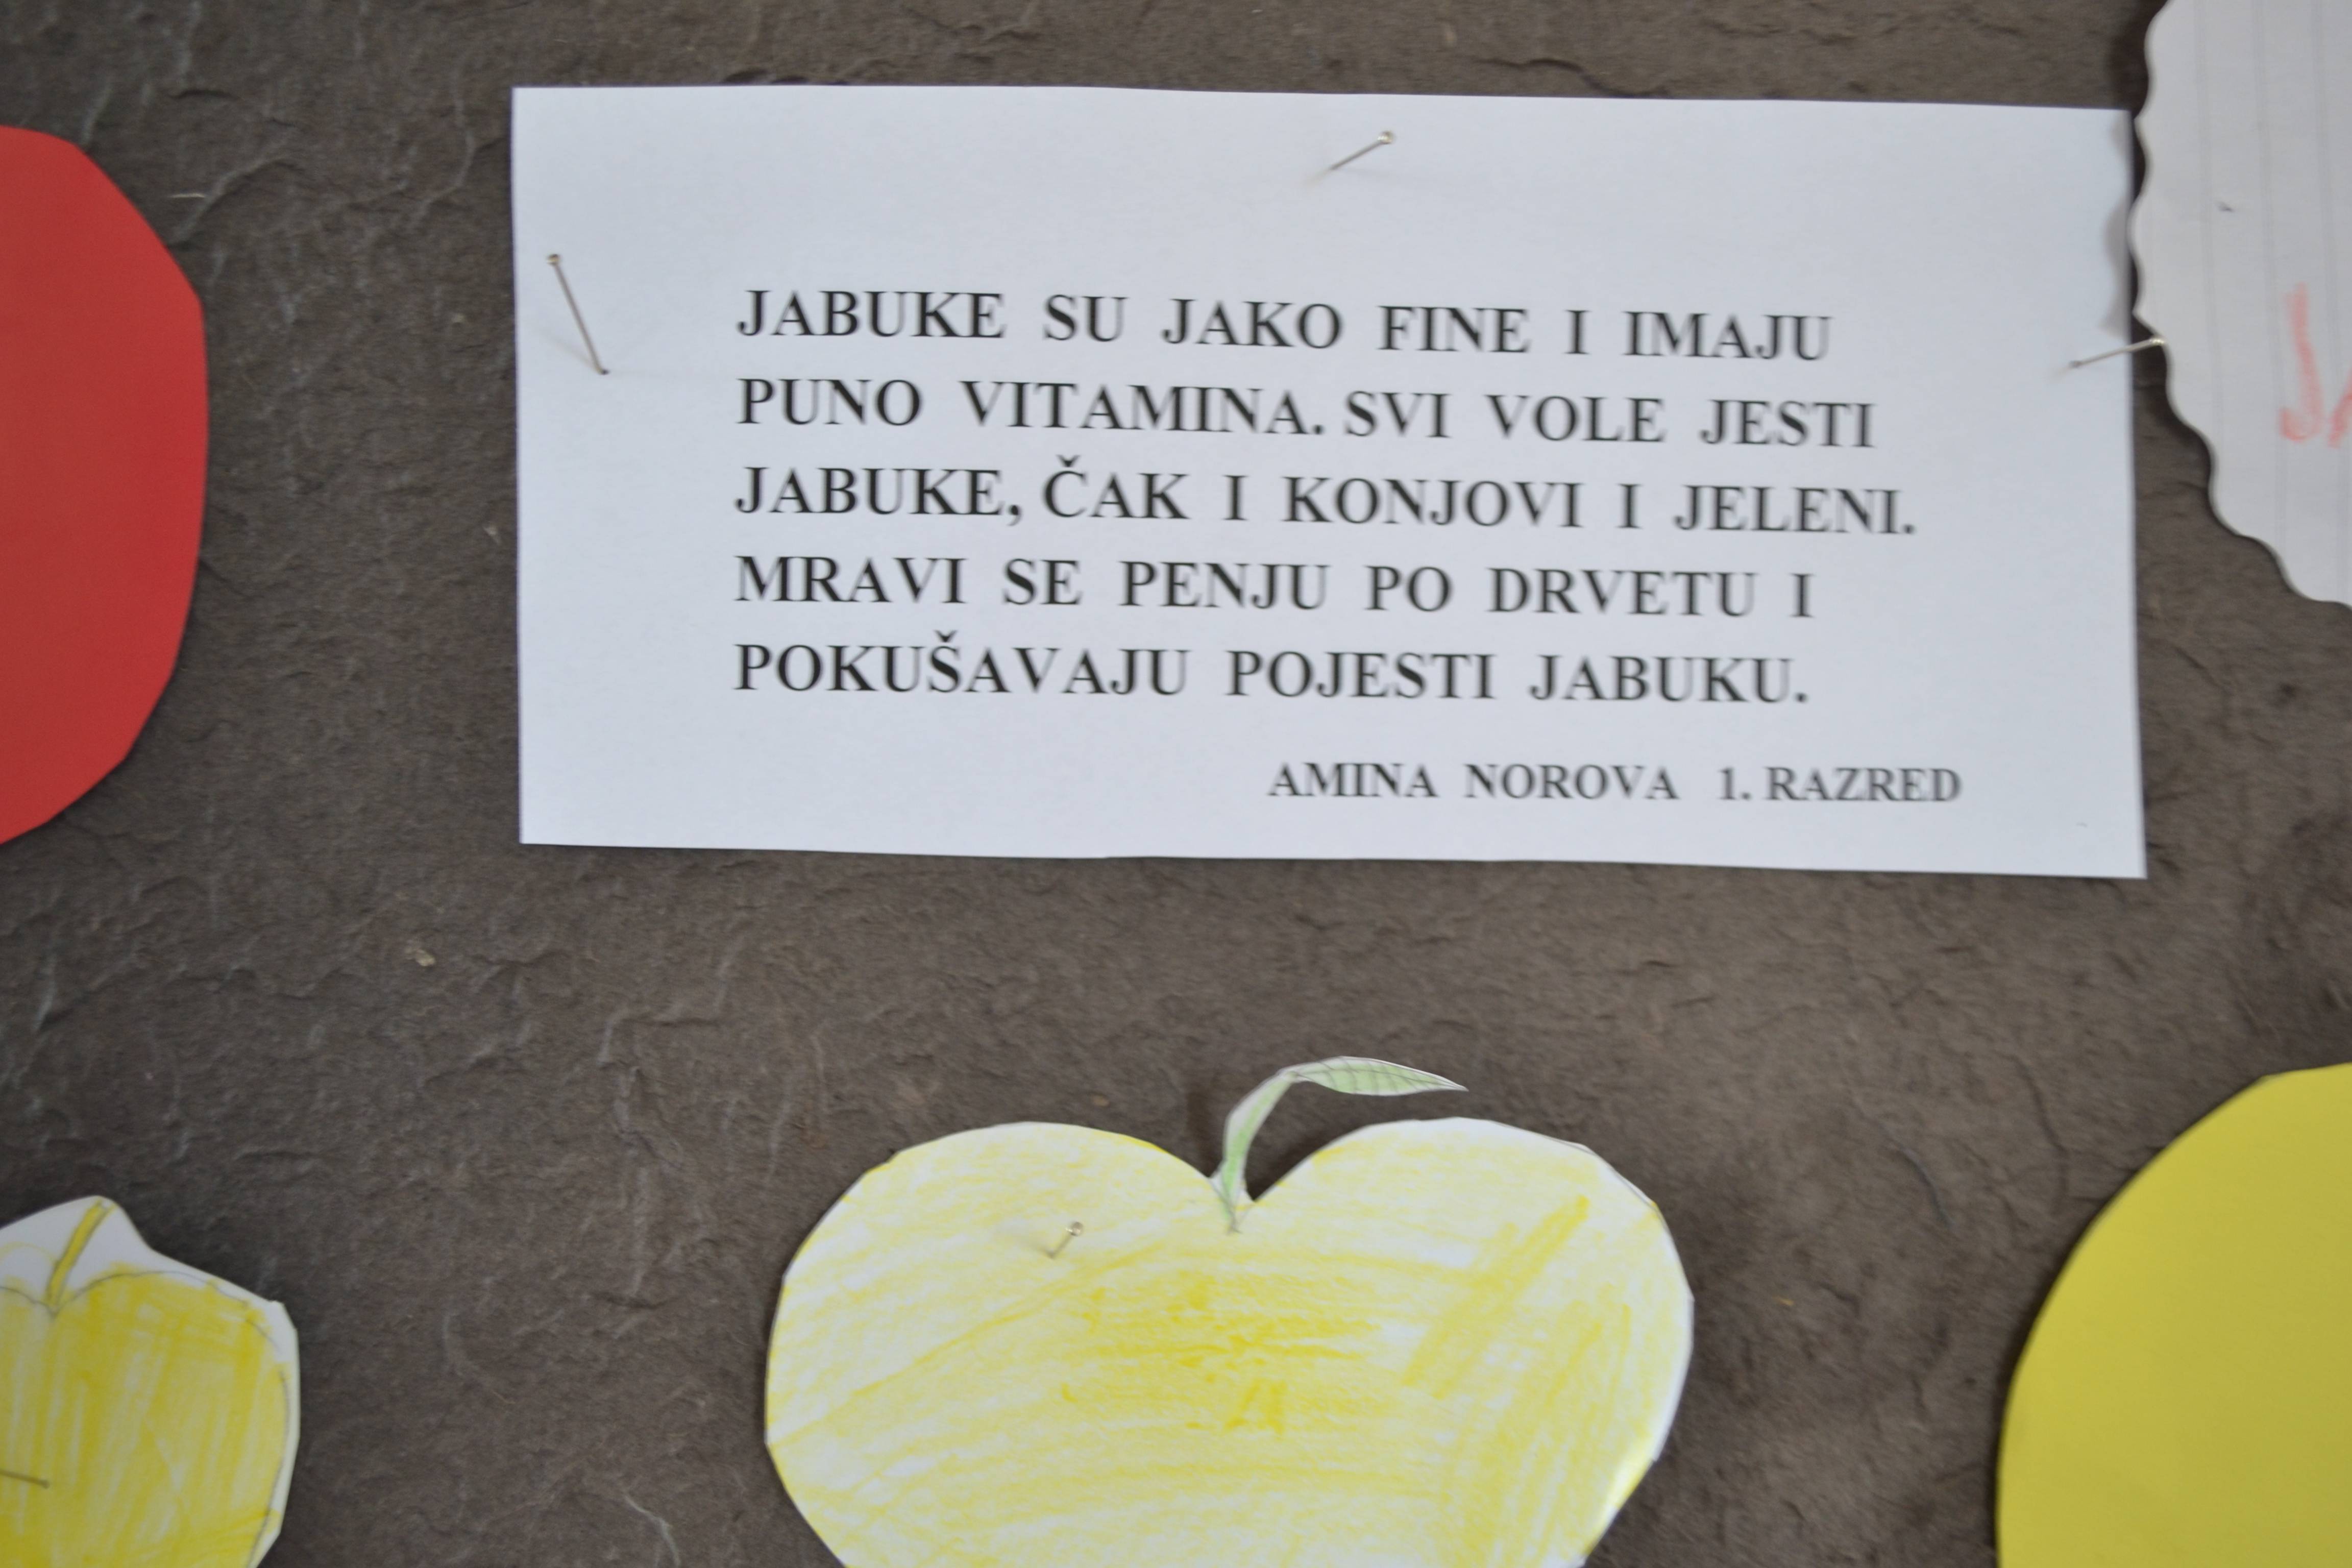 JABUKE SU JAKO FINE I IMAJU
PUNO VITAMINA. SVI VOLE JESTI
JABUKE, ČAK I KONJOVI I JELENI.
MRAVI SE PENJU PO DRVETU I
POKUŠAVAJU POJESTI JABUKU.
AMINA NOROVA 1. RAZRED